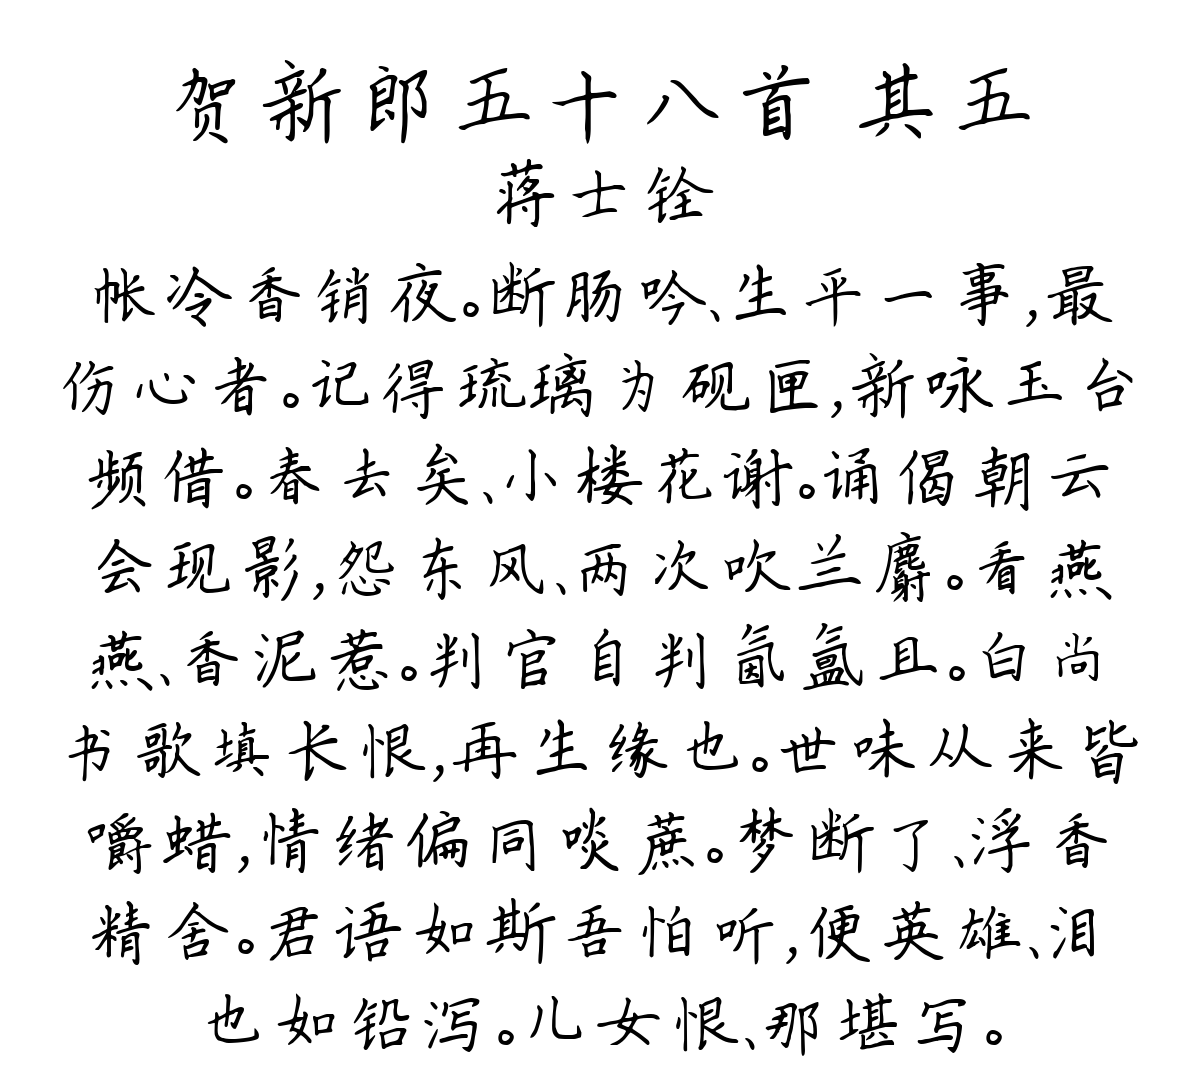 贺新郎五十八首 其五
蒋士铨
帐冷香销夜。断肠吟、生平一事,最
伤心者。记得琉璃为砚匣,新咏玉台
频借。春去矣、小楼花谢。诵偈朝云
会现影,怨东风、两次吹兰麝。看燕
燕、香泥惹。判官自判氤氲且。白尚
书歌填长恨,再生缘也。世味从来皆
嚼蜡,情绪偏同啖蔗。梦断了、浮香
精舍。君语如斯吾怕听,便英雄、泪
也如铅泻。儿女恨、那堪写。